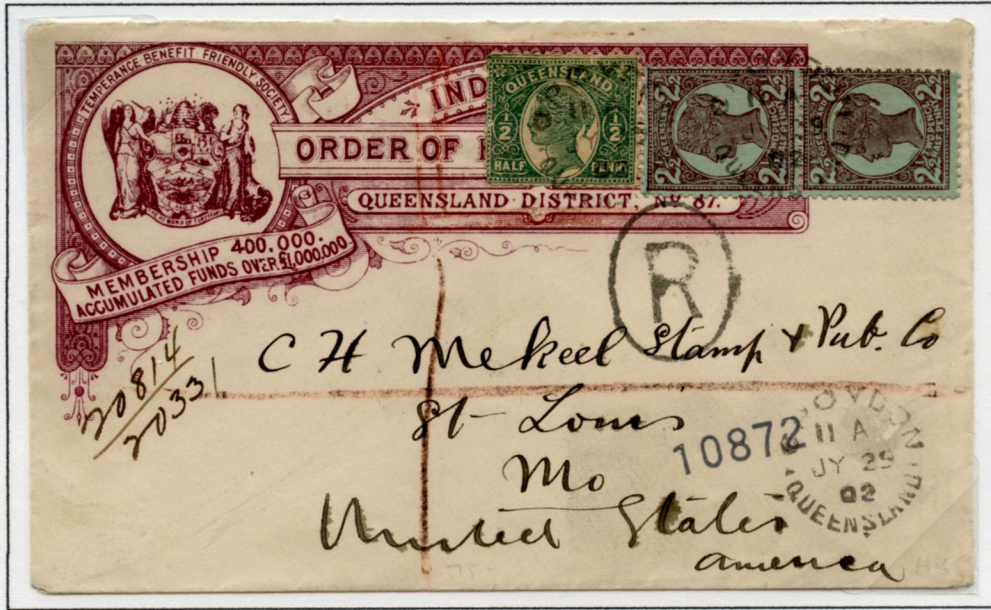 TEMPERANCE BENEFIT FRIENDLY SOCIETY
IND
ORDER OF
QUEENSLAND DISTRICT, No 87.
MEMBERSHIP 400,000.
ACCUMULATED FUNDS OVER £1,000,000
QUEENSLAND
½ ½
HALF PENNY
2½ 2½
2½ 2½
R
20814
20331
C H Mekeel Stamp & Pub. Co
St Louis
Mo
United States
America
10872
CROYDON
11 A
JY 29
02
QUEENSLAND